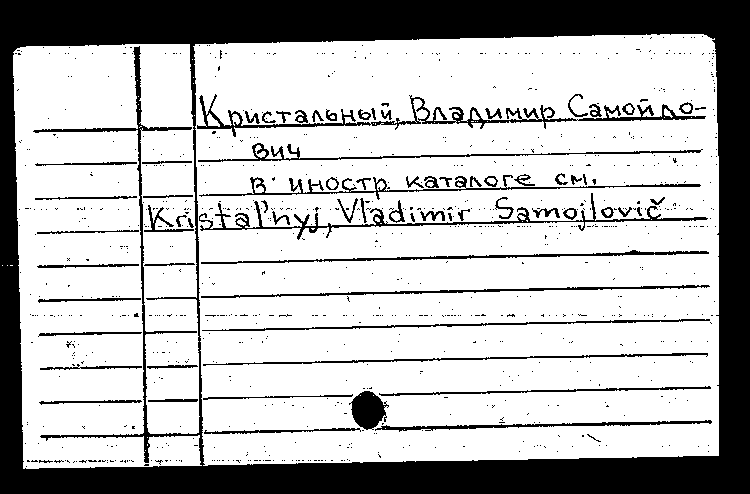 Кристальный, Владимир Самойло-
вич
в иностр каталоге см.
Kristal'nyj, Vladimir Samojlovič